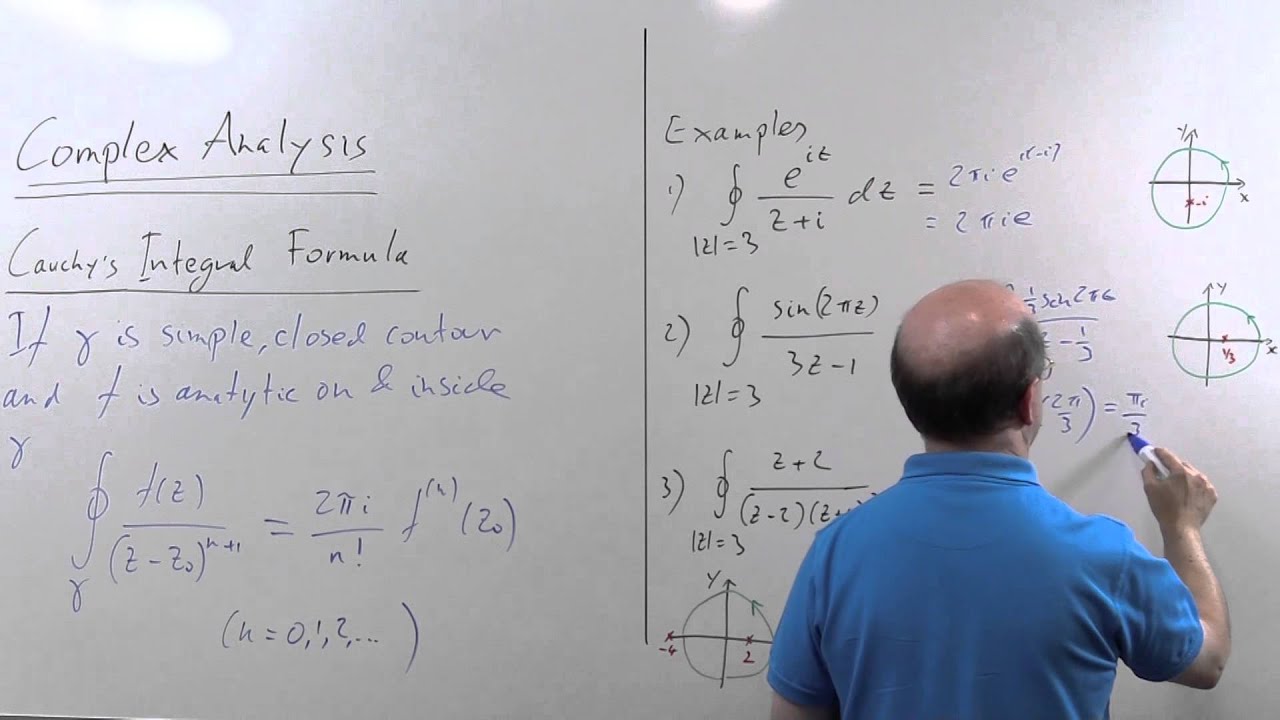 Complex Analysis
Cauchy's Integral Formula
If γ is simple, closed contour
and f is analytic on & inside
γ
∮_γ f(z)/(z-z₀)^(n+1) = 2πi/n! f^(n)(z₀)
(n = 0,1,2,... )
Examples
1) ∮_|z|=3 e^(iz)/(z+i) dz = 2πi e^(i(-i))
= 2πie
y
x
-i
2) ∮_|z|=3 sin(2πz)/(3z-1)
z - 1/3
2π/3) = πi/3
y
x
1/3
3) ∮_|z|=3 z+2/(z-2)(z+
y
-4
2